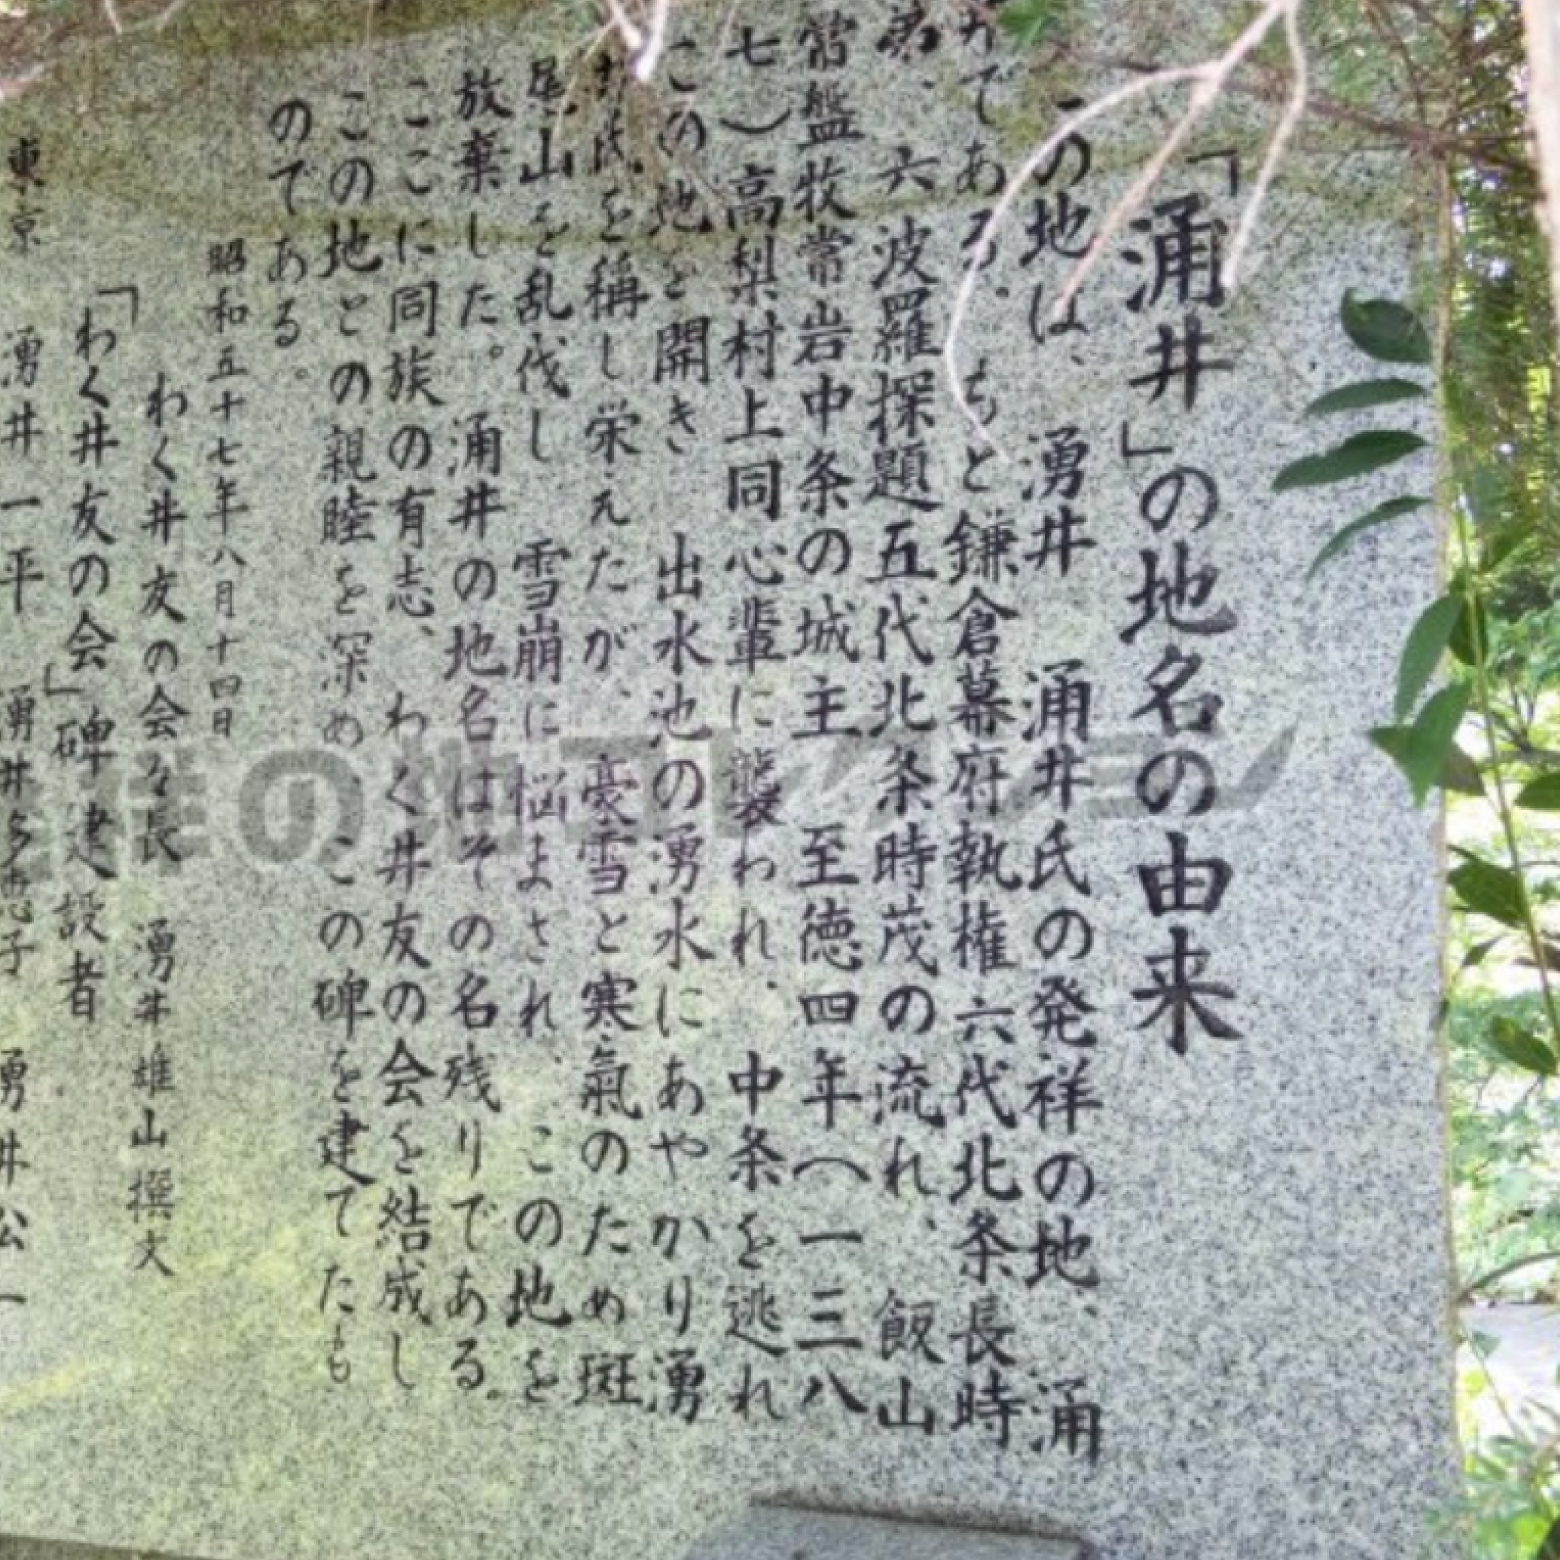 「涌井」の地名の由来
この地は、湧井 涌井氏の発祥の地、涌
井である。もと鎌倉幕府執権六代北条長時
弟、六波羅探題五代北条時茂の流れ、飯山
常盤牧常岩中条の城主 至徳四年(一三八
七)高梨村上同心輩に襲われ、中条を逃れ
この地を開き 出水池の湧水にあやかり湧
井氏を稱し栄えたが、豪雪と寒氣のため斑
尾山を乱伐し 雪崩に悩まされ、この地を
放棄した。涌井の地名はその名残りである。
ここに同族の有志、わく井友の会を結成し
この地との親睦を深め この碑を建てたも
のである。
昭和五十七年八月十四日
わく井友の会々長 湧井雄山撰文
「わく井友の会」碑建設者
東京 湧井一平 湧井多恵子 湧井公一